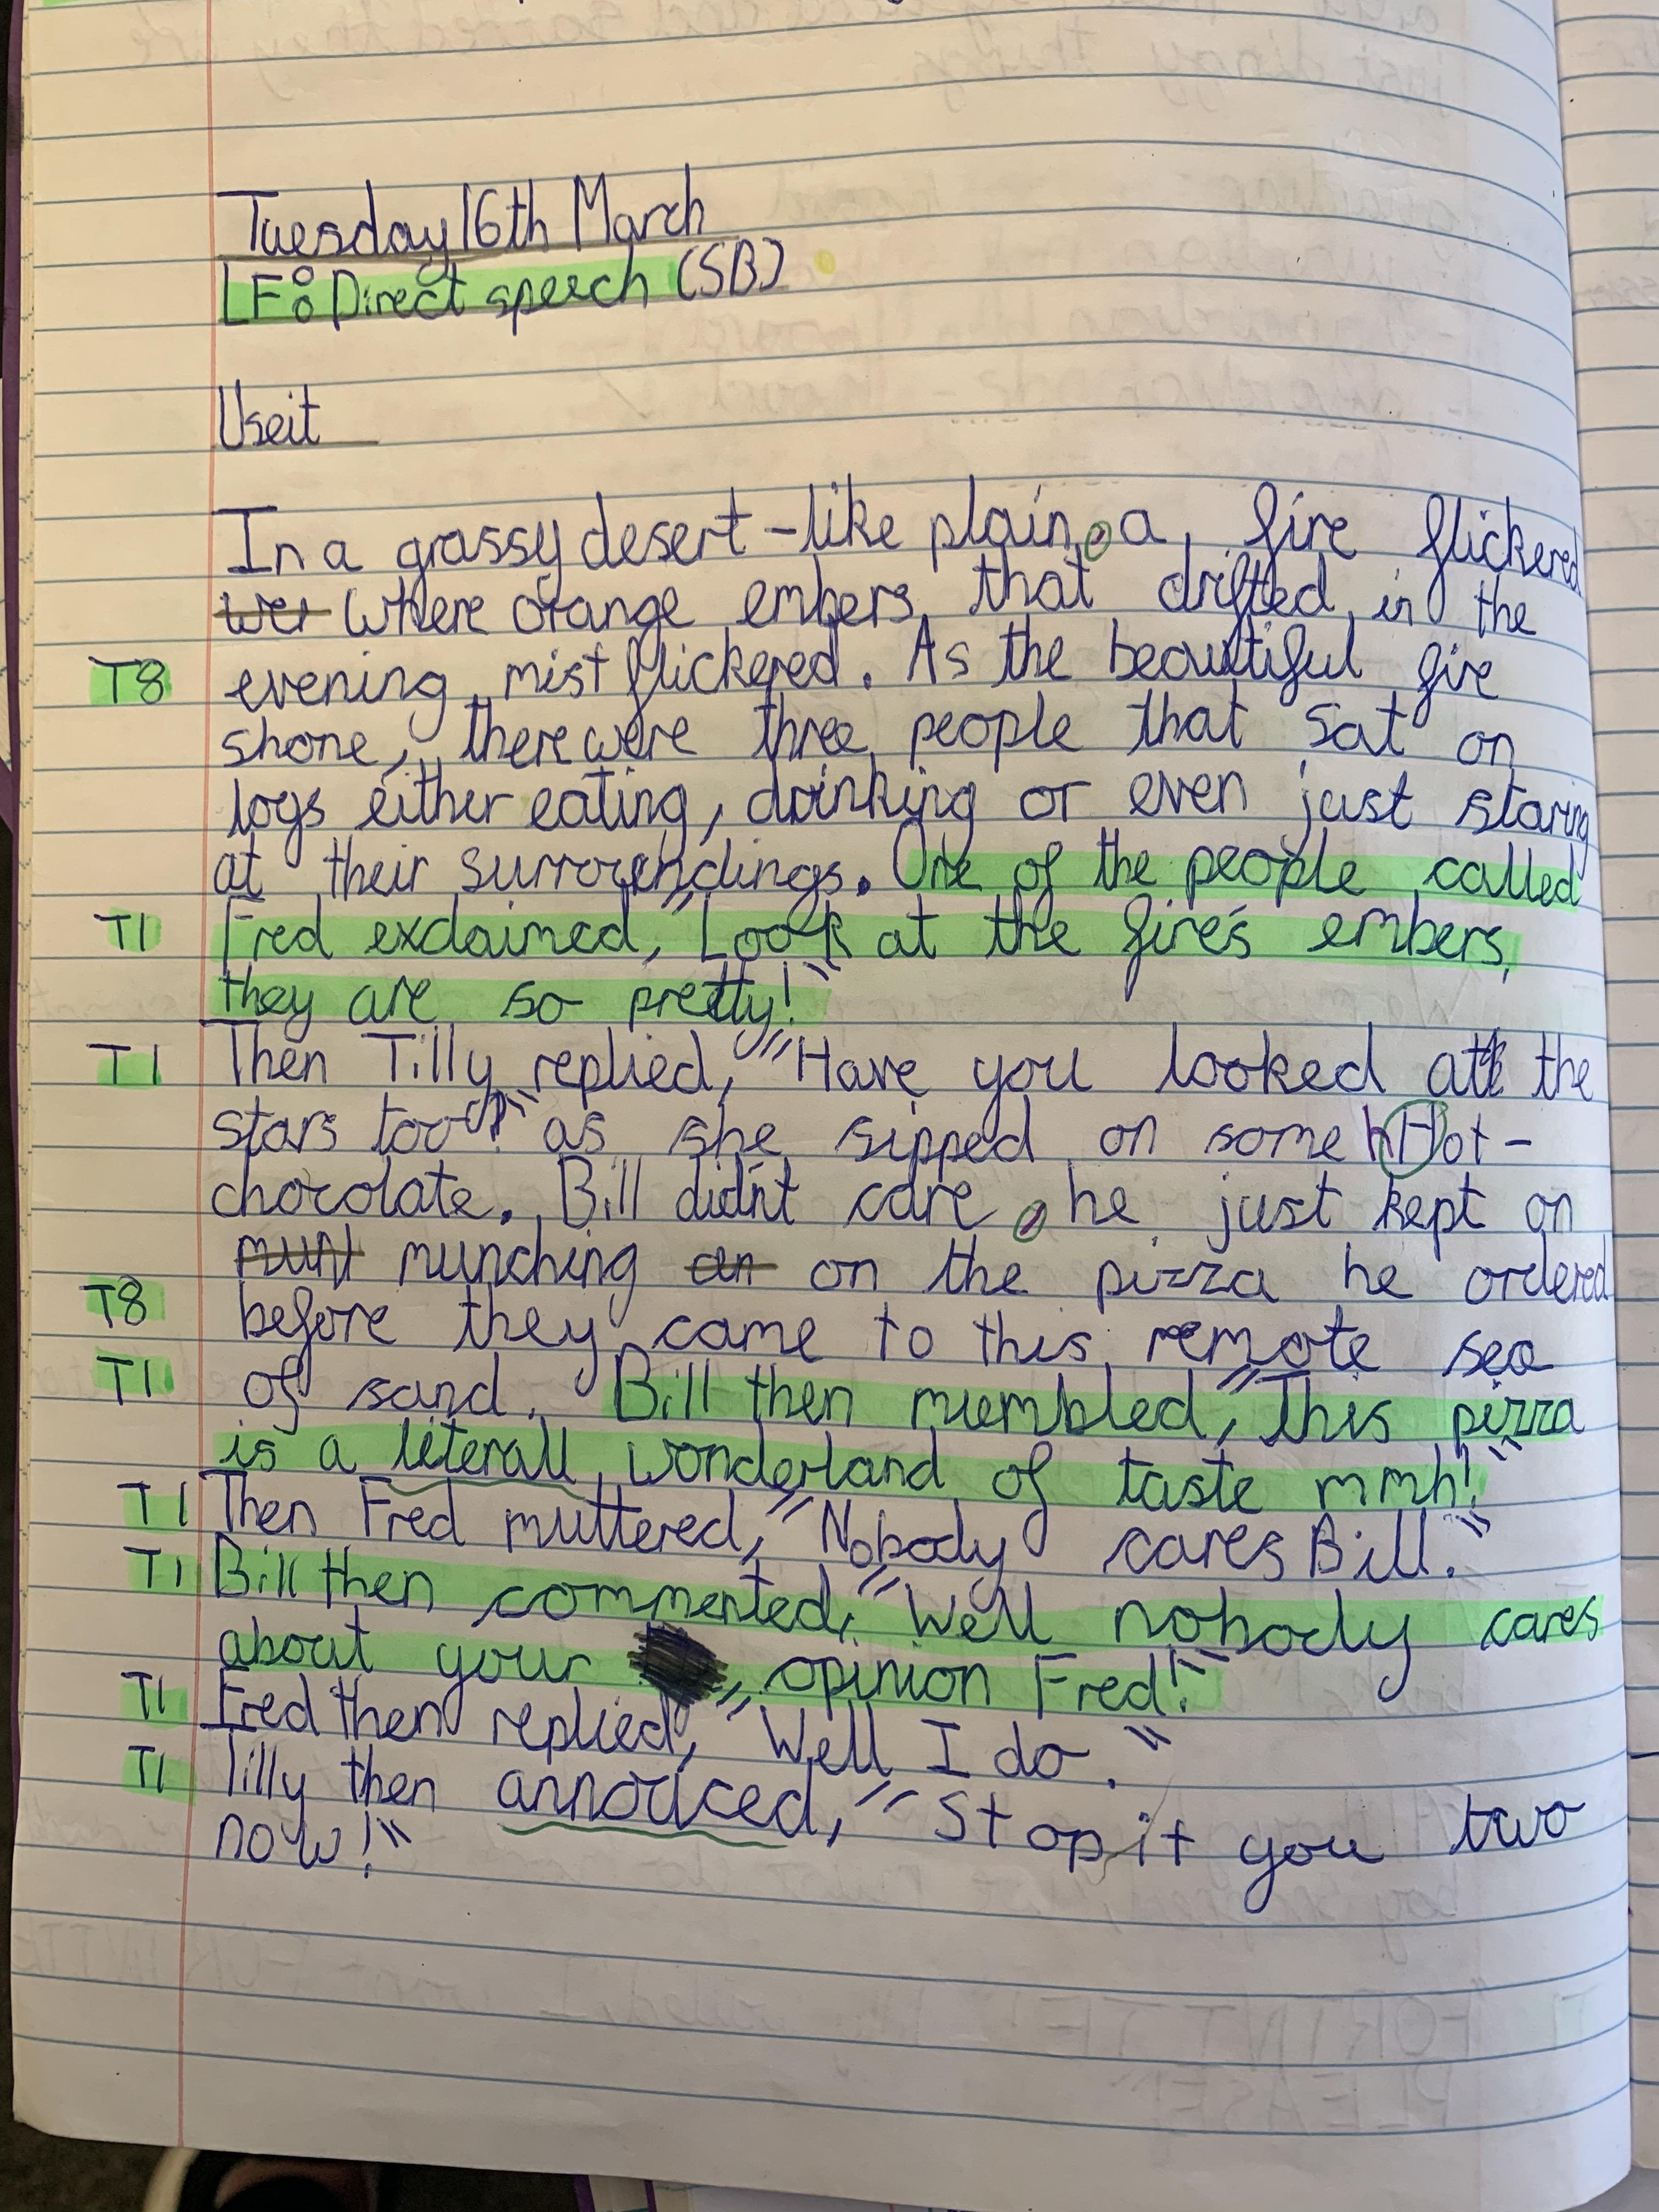 Tuesday 16th March
LF: Direct speech (SB)
Use it
In a grassy desert-like plain, a fire flickered
wer where orange embers that drifted in the
T8 evening mist flickered. As the beautiful fire
shone, there were three people that sat on
logs either eating, drinking or even just staring
at their surroundings. One of the people called
T1 Fred exclaimed, "Look at the fire's embers,
they are so pretty!"
T1 Then Tilly replied, "Have you looked at the
stars too?" as she sipped on some hHot-
chocolate. Bill didn't care, he just kept on
munching on the pizza he ordered
T8 before they came to this remote sea
T1 of sand. Bill then mumbled, "This pizza
is a literall wonderland of taste mmh!"
T1 Then Fred muttered, "Nobody cares Bill."
T1 Bill then commented, "Well nobody cares
about your opinion Fred!"
T1 Fred then replied, "Well I do."
T1 Tilly then annouced, "Stop it you two
now!"